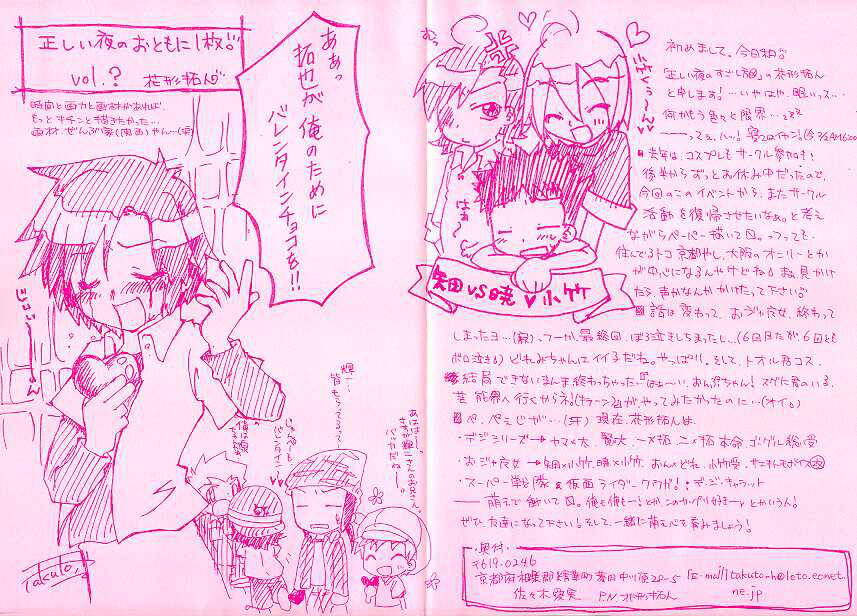 正しい夜のおともに1枚♡
vol.? 花形拓ん♡
時間と画力と画材があれば、
もっとキチンと描きたかった…
画材、ぜんぶ家(関西)やん…(涙)
ああっ
拓也が俺のために
バレンタインチョコを!!
輝一…
皆もらってるって…
あははー。
さすが輝二さんのお兄さん。
バッカだねー。
バレンタイン
Takuto.
矢田VS暁♥小竹
はぁ〜
初めまして。今日和♡
「正しい夜のすごし方」の花形拓ん
と申します!…いやはや、眠いっス…
何かもう色々と限界…zzz
――って、ハッ!寝てはイケン!
去年は、コスプレもサークル参加も
後半からずっとお休み中だったので、
今回のこのイベントから、またサークル
活動を復帰させたいなぁ。と考え
ながらペーパー描いて〼。つっても、
住んでるトコ京都やし、大阪のオンリーとか
が中心になるんやけどね。まぁ、見かけ
たら、声かなんかかけたって下さい♡
話は変わって、おジャ魔女、終わって
しまったヨ…(寂)、つーか、最終回、ぼろ泣きしちまったし…(6回見たが6回とも
ボロ泣き) どれみちゃんはイイ子だね。やっぱり。そして、トオル君コス、
結局できないまんま終わっちゃった。「ほぇ〜い、おんぷちゃん!スグに君のいる、
芸能界へ行くからネ!(キラーン)」がやってみたかったのに…(オイ。)
ぺ、ぺえじが…(汗) 現在、花形拓んは、
・デジシリーズ→ヤマ×太、賢×大、一×拓、二×拓 本命、ゴーグル総受
・おジャ魔女→矢田×小竹、暁×小竹、おん×どれ、小竹受
・スーパー戦隊&仮面ライダークウガ!・デ・ジ・キャラット
――萌えて動いて〼。俺も俺もー!とか、このカップリ好きーッとかいう人!
ぜひ友達になって下さい!そして、一緒に萌え心を育みましょう!
・奥付・
〒619-0246
E-mail takuto-h@leto.eonet.
ne.jp
P.N 花形拓ん